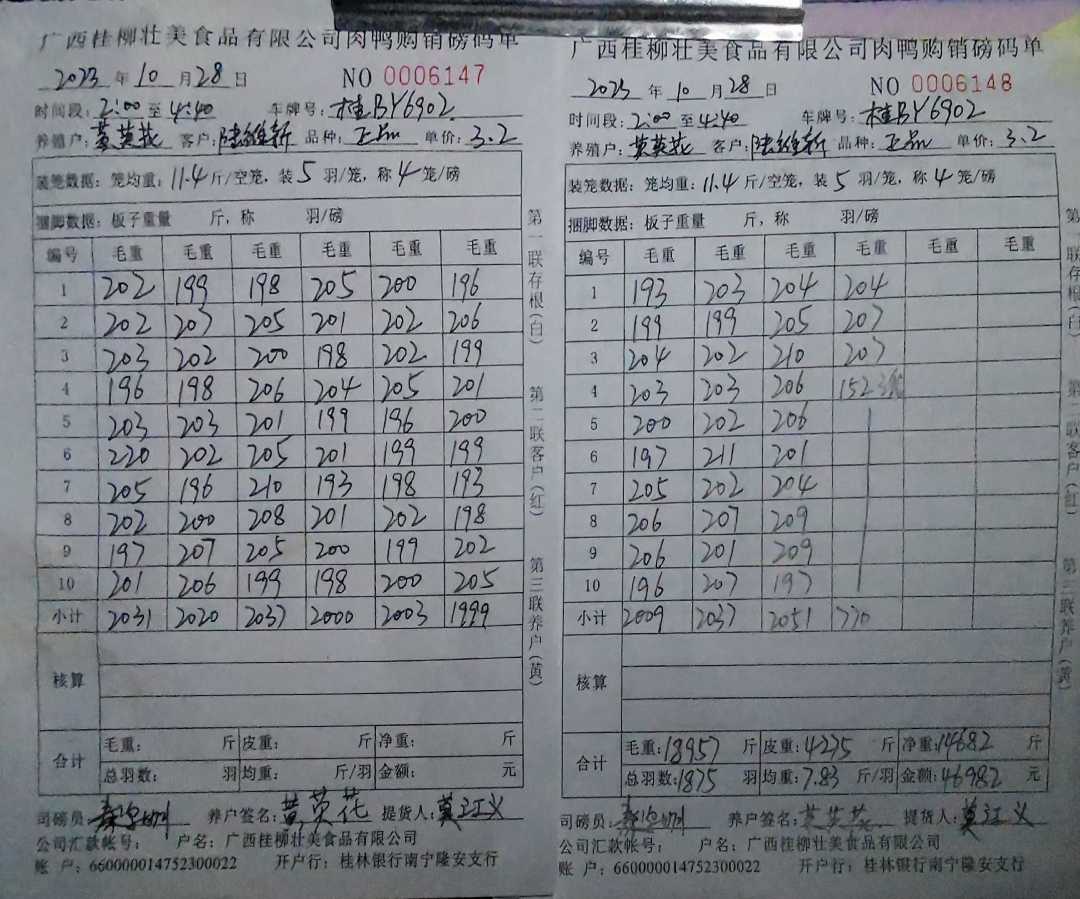 广西桂柳壮美食品有限公司肉鸭购销磅码单
2023年10月28日 NO 0006147
时间段：2:00至4:40 车牌号：桂BY6902
养殖户：黄英花 客户：陆维新 品种：正品 单价：3.2
装笼数据：笼均重：11.4斤/空笼，装5羽/笼，称4笼/磅
捆脚数据：板子重量 斤，称 羽/磅
编号 毛重 毛重 毛重 毛重 毛重 毛重
1 202 199 198 205 200 196
2 202 207 205 201 202 206
3 203 202 200 198 202 199
4 196 198 206 204 205 201
5 203 203 201 199 196 200
6 220 202 205 201 199 199
7 205 196 210 193 198 193
8 202 200 208 201 202 198
9 197 207 205 200 199 202
10 201 206 199 198 200 205
小计 2031 2020 2037 2000 2003 1999
核算
合计 毛重： 斤 皮重： 斤 净重： 斤
总羽数： 羽 均重： 斤/羽 金额： 元
司磅员： 养户签名：黄英花 提货人：莫江义
公司汇款帐号： 户名：广西桂柳壮美食品有限公司
账 户：660000014752300022 开户行：桂林银行南宁隆安支行
第一联存根（白） 第二联客户（红） 第三联养户（黄）
广西桂柳壮美食品有限公司肉鸭购销磅码单
2023年10月28日 NO 0006148
时间段：2:00至4:40 车牌号：桂BY6902
养殖户：黄英花 客户：陆维新 品种：正品 单价：3.2
装笼数据：笼均重：11.4斤/空笼，装5羽/笼，称4笼/磅
捆脚数据：板子重量 斤，称 羽/磅
编号 毛重 毛重 毛重 毛重 毛重 毛重
1 193 203 204 204
2 199 199 205 207
3 204 202 210 207
4 203 203 206 152 3笼
5 200 202 206
6 197 211 201
7 205 202 204
8 206 207 209
9 206 201 209
10 196 207 197
小计 2009 2037 2051 770
核算
合计 毛重：18957斤 皮重：4275斤 净重：14682斤
总羽数：1875羽 均重：7.83斤/羽 金额：46982元
司磅员： 养户签名：黄英花 提货人：莫江义
公司汇款帐号： 户名：广西桂柳壮美食品有限公司
账 户：660000014752300022 开户行：桂林银行南宁隆安支行
第一联存根（白） 第二联客户（红） 第三联养户（黄）